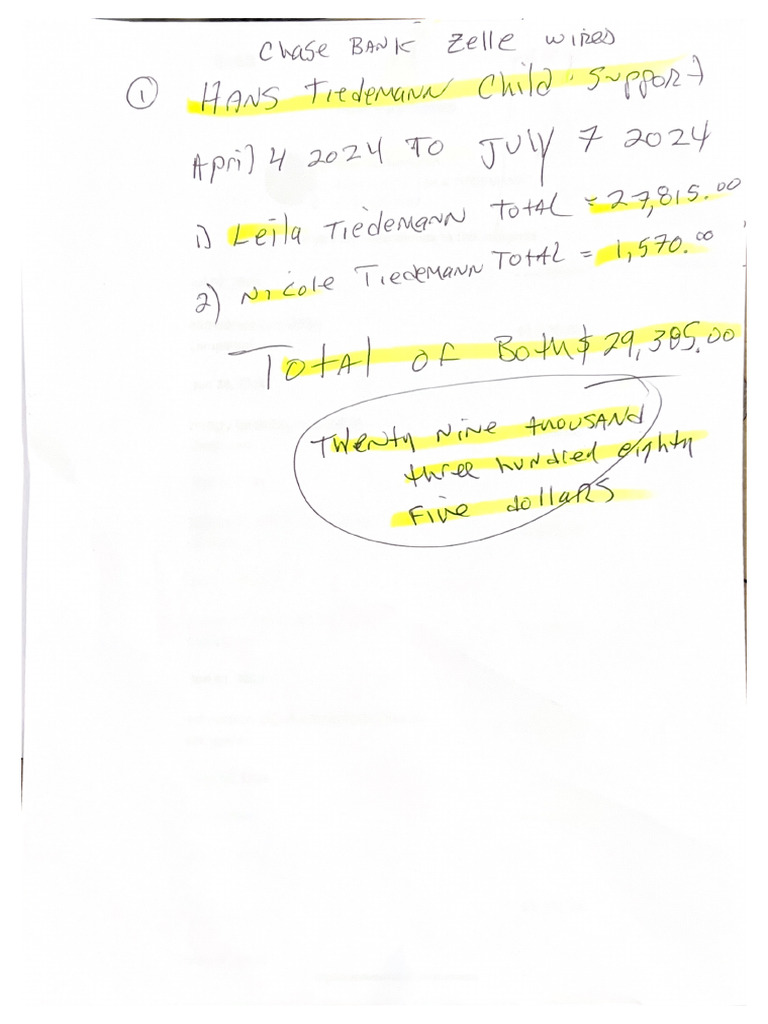 Chase BANK Zelle wires
① HANS Tiedemann Child Support
April 4 2024 TO JULY 7 2024
1) Leila TIEDEMANN TOTAL = 27,815.00
2) Nicole TIEDEMANN TOTAL = 1,570.00
TOTAL OF BOTH $ 29,385.00
TWENTY NINE THOUSAND
three hundred eighty
FIVE dollARS